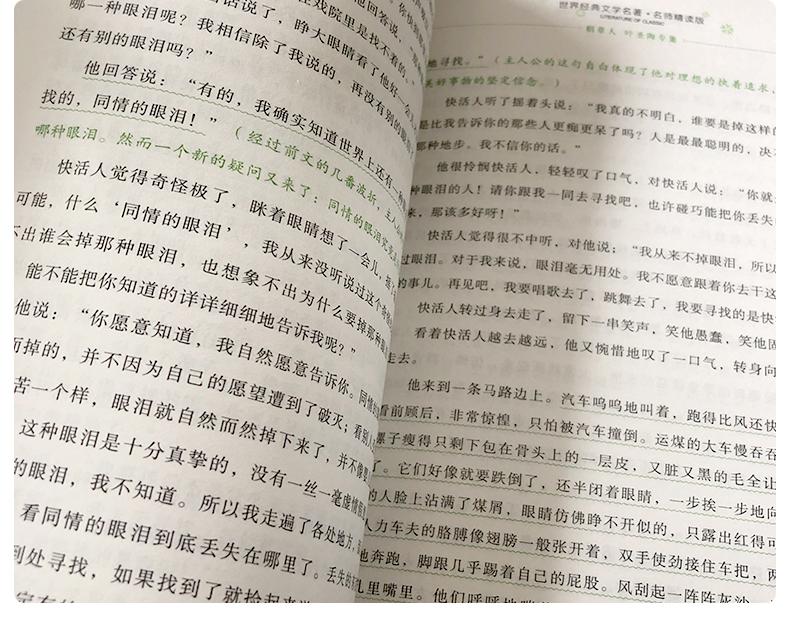 哪一种眼泪呢？我相信除了我说的，再没有别的眼
还有别的眼泪吗？”
他回答说：“有的，我确实知道世界上还有一种
找的，同情的眼泪！”（经过前文的几番波折，主人
哪种眼泪。然而一个新的疑问又来了：同情的眼泪究
快活人觉得奇怪极了，眯着眼睛想了一会儿，摇
可能，什么‘同情的眼泪’，我从来没听说过这个奇怪
不出谁会掉那种眼泪，也想象不出为什么要掉那种
能不能把你知道的详详细细地告诉我呢？”
他说：“你愿意知道，我自然愿意告诉你。同情
而掉的，并不因为自己的愿望遭到了破灭；看别人
苦一个样，眼泪就自然而然掉下来了，并不像
这种眼泪是十分真挚的，没有一丝一毫虚情假
的眼泪，我不知道。所以我走遍了各处地方，
看同情的眼泪到底丢失在哪里了。丢失的
到处寻找，如果找到了就捡起来
世界经典文学名著·名师精读版
LITERATURE OF CLASSIC
稻草人 叶圣陶专集
地寻找。”（主人公的这句自白体现了他对理想的执着追求，
美好事物的坚定信念。）
快活人听了摇着头说：“我真的不明白，谁要是掉这样的
是比我告诉你的那些人更痴更呆了吗？人是最最聪明的，决
那种地步。我不信你的话。”
他很怜悯快活人，轻轻叹了口气，对快活人说：“你就
种眼泪的人！请你跟我一同去寻找吧，也许碰巧能把你丢失
来，那该多好呀！”
快活人觉得很不中听，对他说：“我从来不掉眼泪，所以
过眼泪。对于我来说，眼泪毫无用处。我不愿意跟着你去干这
的事儿。再见吧，我要唱歌去了，跳舞去了，我要寻找的是快
快活人转过身去走了，留下一串笑声，笑他愚蠢，笑他固
看着快活人越去越远，他又惋惜地叹了一口气，转身向
走去。
他来到一条马路边上。汽车呜呜地叫着，跑得比风还快
看前顾后，非常惊惶，只怕被汽车撞倒。运煤的大车慢吞吞
骡子瘦得只剩下包在骨头上的一层皮，又脏又黑的毛全让
了。它们好像就要跌倒了，还半闭着眼睛，一步挨一步地向
的人脸上沾满了煤屑，眼睛仿佛睁不开似的，只露出红得可
人力车夫的胳膊像翅膀一般张开着，双手使劲接住车把，两
地奔跑，脚跟几乎踢着自己的屁股。风刮起一阵阵灰沙，
儿里嘴里。他们呼呼地喘